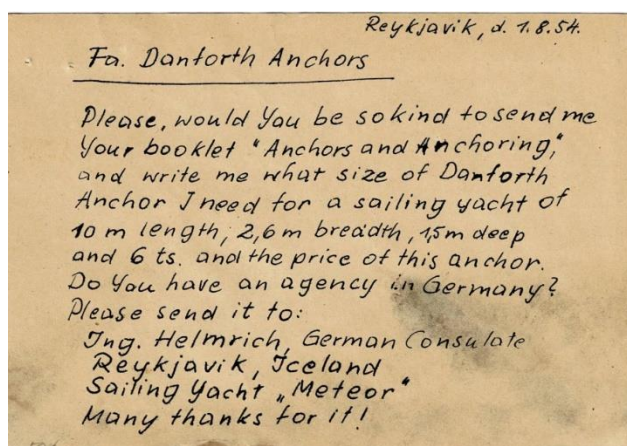 Reykjavik, d. 1.8.54.
Fa. Danforth Anchors
Please, would You be so kind to send me
Your booklet "Anchors and Anchoring,"
and write me what size of Danforth
Anchor I need for a sailing yacht of
10 m length, 2,6 m breadth, 1,5m deep
and 6 ts. and the price of this anchor.
Do You have an agency in Germany?
Please send it to:
Ing. Helmrich, German Consulate
Reykjavik, Iceland
Sailing Yacht „Meteor"
Many thanks for it!